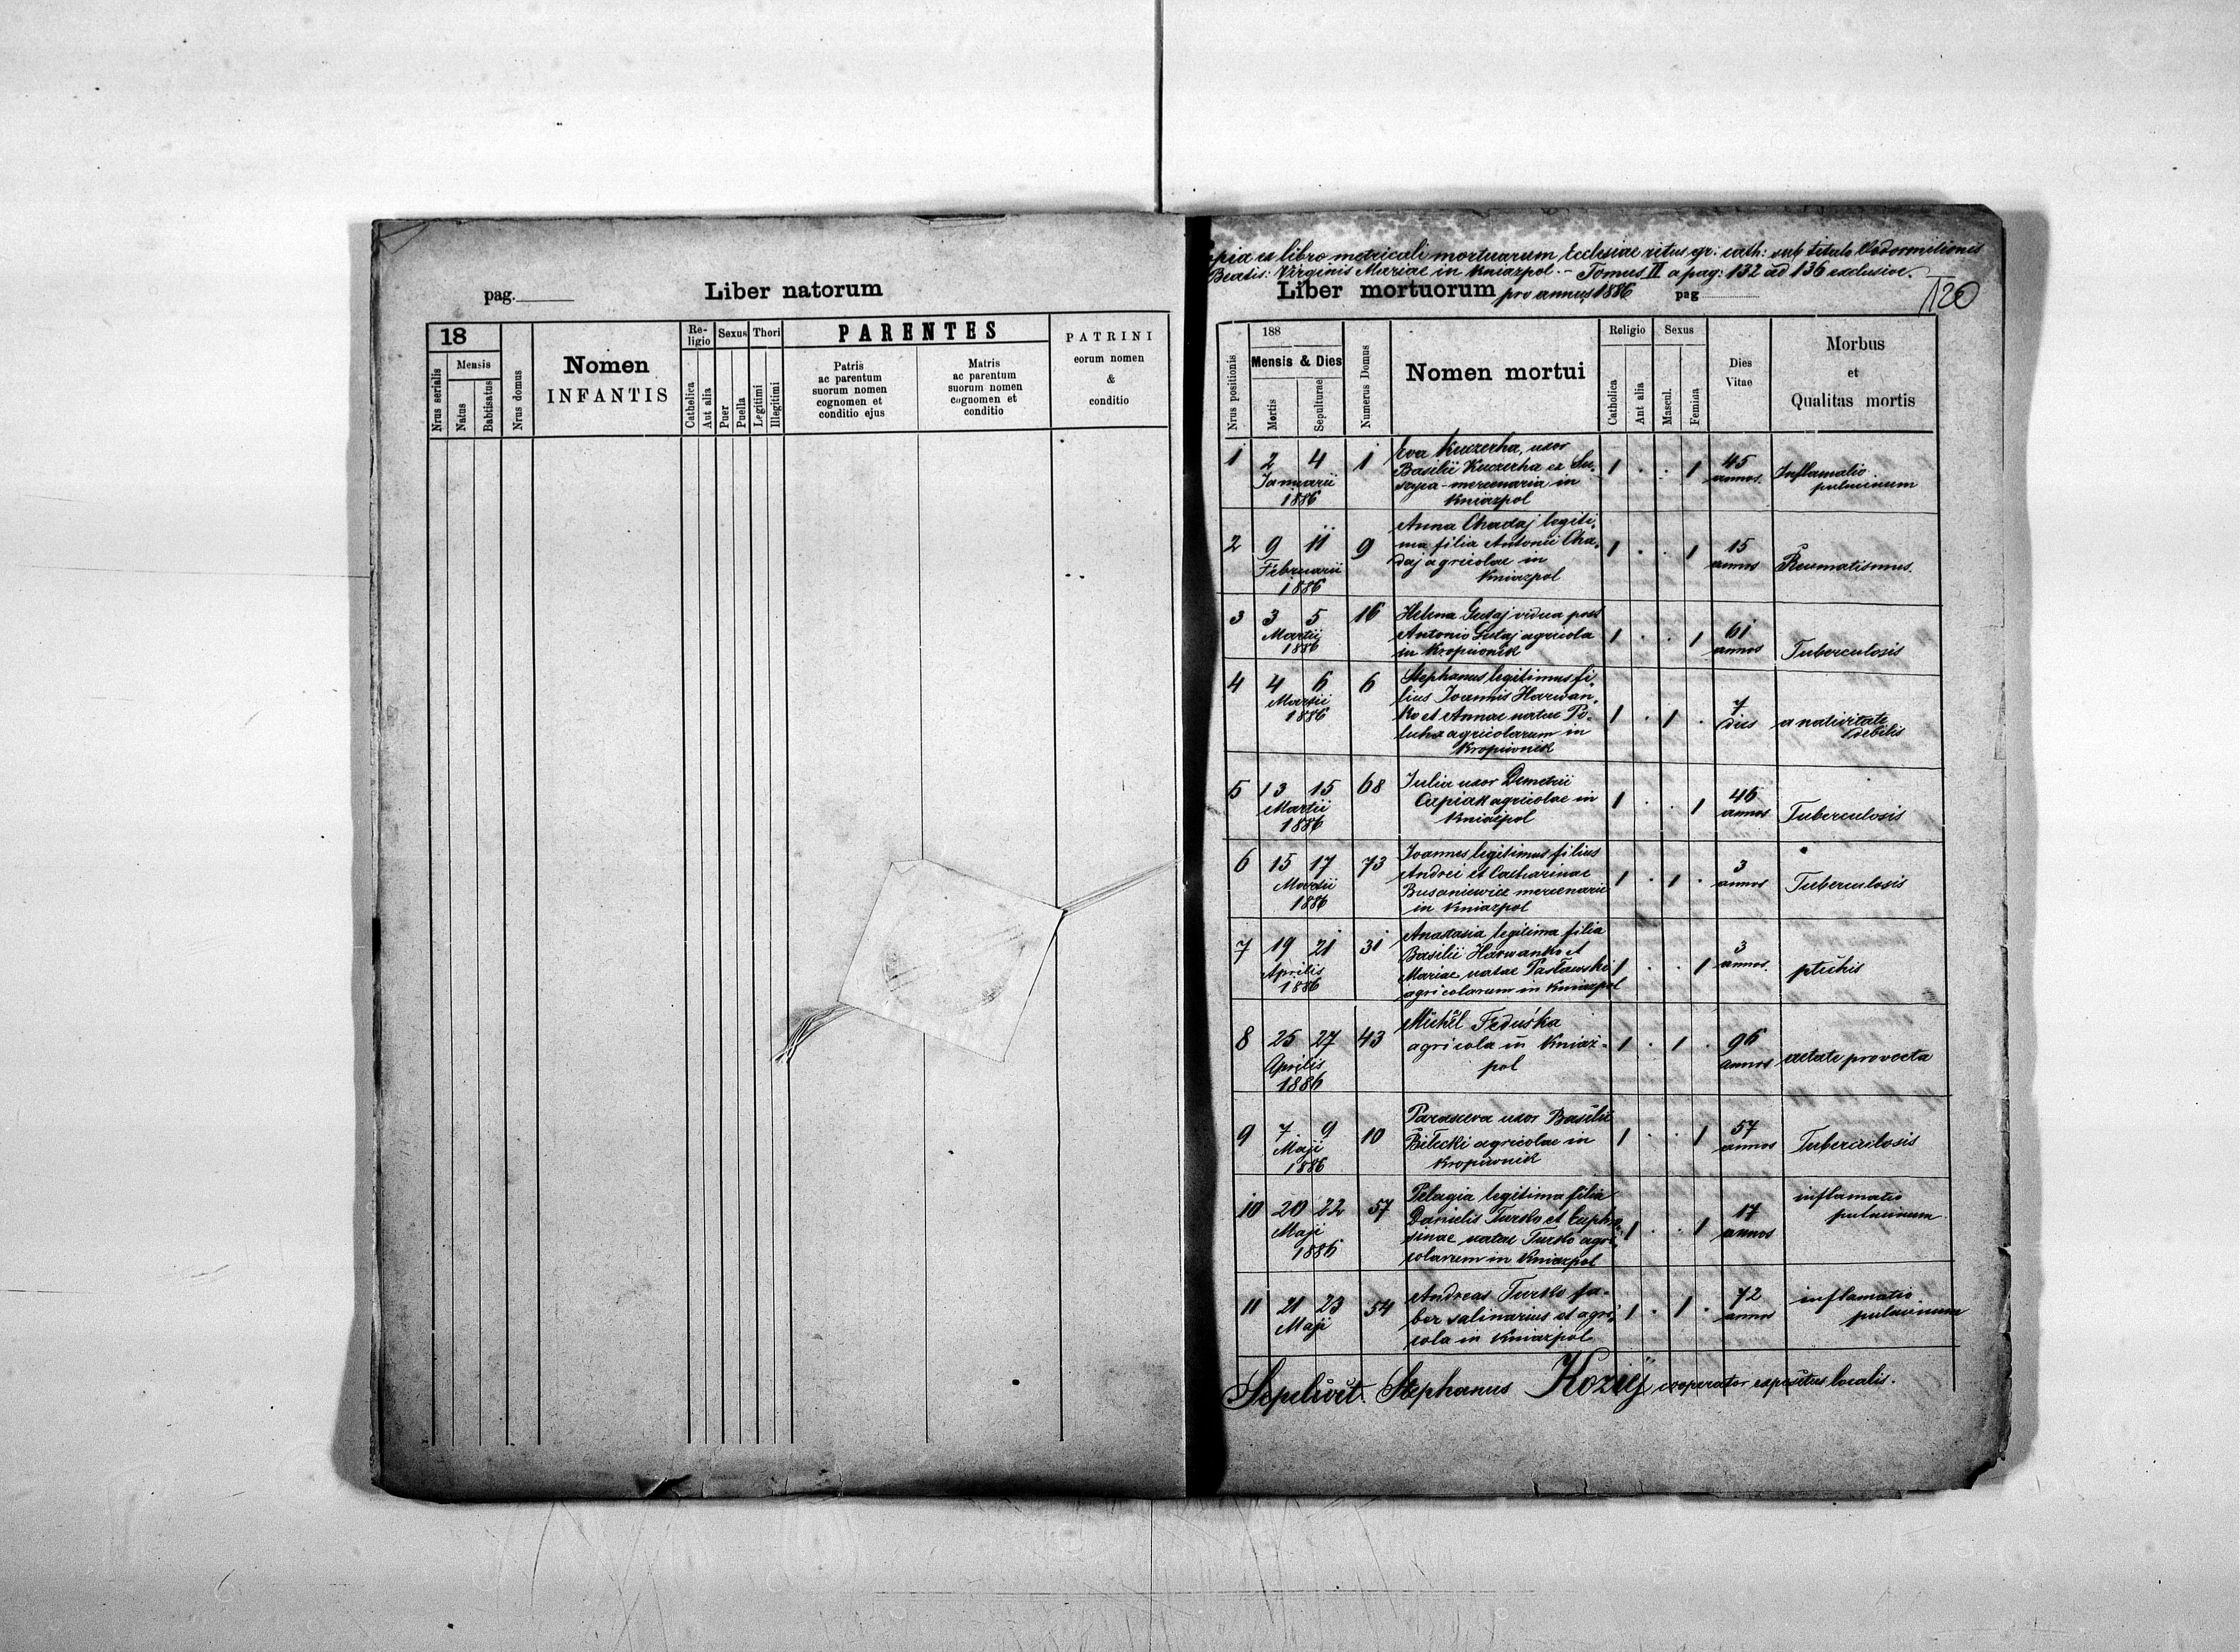 pag.
Liber natorum
18
Mensis
Nrus serialis
Natus
Babtisatus
Nrus domus
Nomen
INFANTIS
Re-
ligio
Catholica
Aut alia
Sexus
Puer
Puella
Thori
Legitimi
Illegitimi
PARENTES
Patris
ac parentum
suorum nomen
cognomen et
conditio ejus
Matris
ac parentum
suorum nomen
cognomen et
conditio
PATRINI
eorum nomen
&
conditio
Copia ex libro metricali mortuarum Ecclesiae ritus gr: cath: sub titulo Obdormitionis
Beatis: Virginis Mariae in Kniazpol - Tomus II a pag: 132 ad 136 exclusive.
Liber mortuorum pro annus 1886 pag
120
Nrus positionis
188
Mensis & Dies
Mortis
Sepulturae
Numerus Domus
Nomen mortui
Religio
Catholica
Aut alia
Sexus
Mascul.
Femina
Dies
Vitae
Morbus
et
Qualitas mortis
1 2 4 1
Januarii
1886
Eva Kuczerha, uxor
Basilii Kuczerha ex
mercenaria in
Kniazpol
1 . . 1
45
annos.
Inflamatio
pulmonum
2 9 11 9
Februarii
1886
Anna Chadaj legiti-
ma filia Antonii Cha-
daj agricolae in
Kniazpol
1 . . 1
15
annos
Reumatismus.
3 3 5 16
Martii
1886
Helena Gutaj vidua post
Antonio Gutaj agricola
in Kropiwnik
1 . . 1
61
annos
Tuberculosis
4 4 6 6
Martii
1886
Stephanus legitimus fi-
lius Joannis Harwan-
ko et Annae natae Pe-
lucha agricolarum in
Kropiwnik
1 . 1 .
7
dies
a nativitate
debilis
5 13 15 68
Martii
1886
Julia uxor Demetrii
Capiak agricolae in
Kniazpol
1 . . 1
46
annos
Tuberculosis
6 15 17 73
Martii
1886
Joannes legitimus filius
Andrei et Catharinae
Busaniewicz mercenarii
in Kniazpol
1 . 1 .
3
annos
Tuberculosis
7 19 21 31
Aprilis
1886
Anastasia legitima filia
Basilii Harwanko et
Mariae natae Pasławski
agricolarum in Kniazpol
1 . . 1
3
annos.
ptichis
8 25 27 43
Aprilis
1886
Michėl Feduśka
agricola in Kniaź-
pol
1 . 1 .
96
annos
aetate provecta
9 7 9 10
Maji
1886
Parasceva uxor Basilii
Bilecki agricolae in
Kropiwnik
1 . . 1
57
annos
Tuberculosis
10 20 22 57
Maji
1886
Pelagia legitima filia
Danielis Tursko et Euphro-
sinae natae Tursko agri-
colarum in Kniazpol
1 . . 1
17
annos
inflamatio
pulmonum
11 21 23 54
Maji
Andreas Tursko fa-
ber salinarius et agri-
cola in Kniazpol
1 . 1 .
72
annos
inflamatio
pulmonum
Sepelivit. Stephanus Kozij cooperator expositus localis.